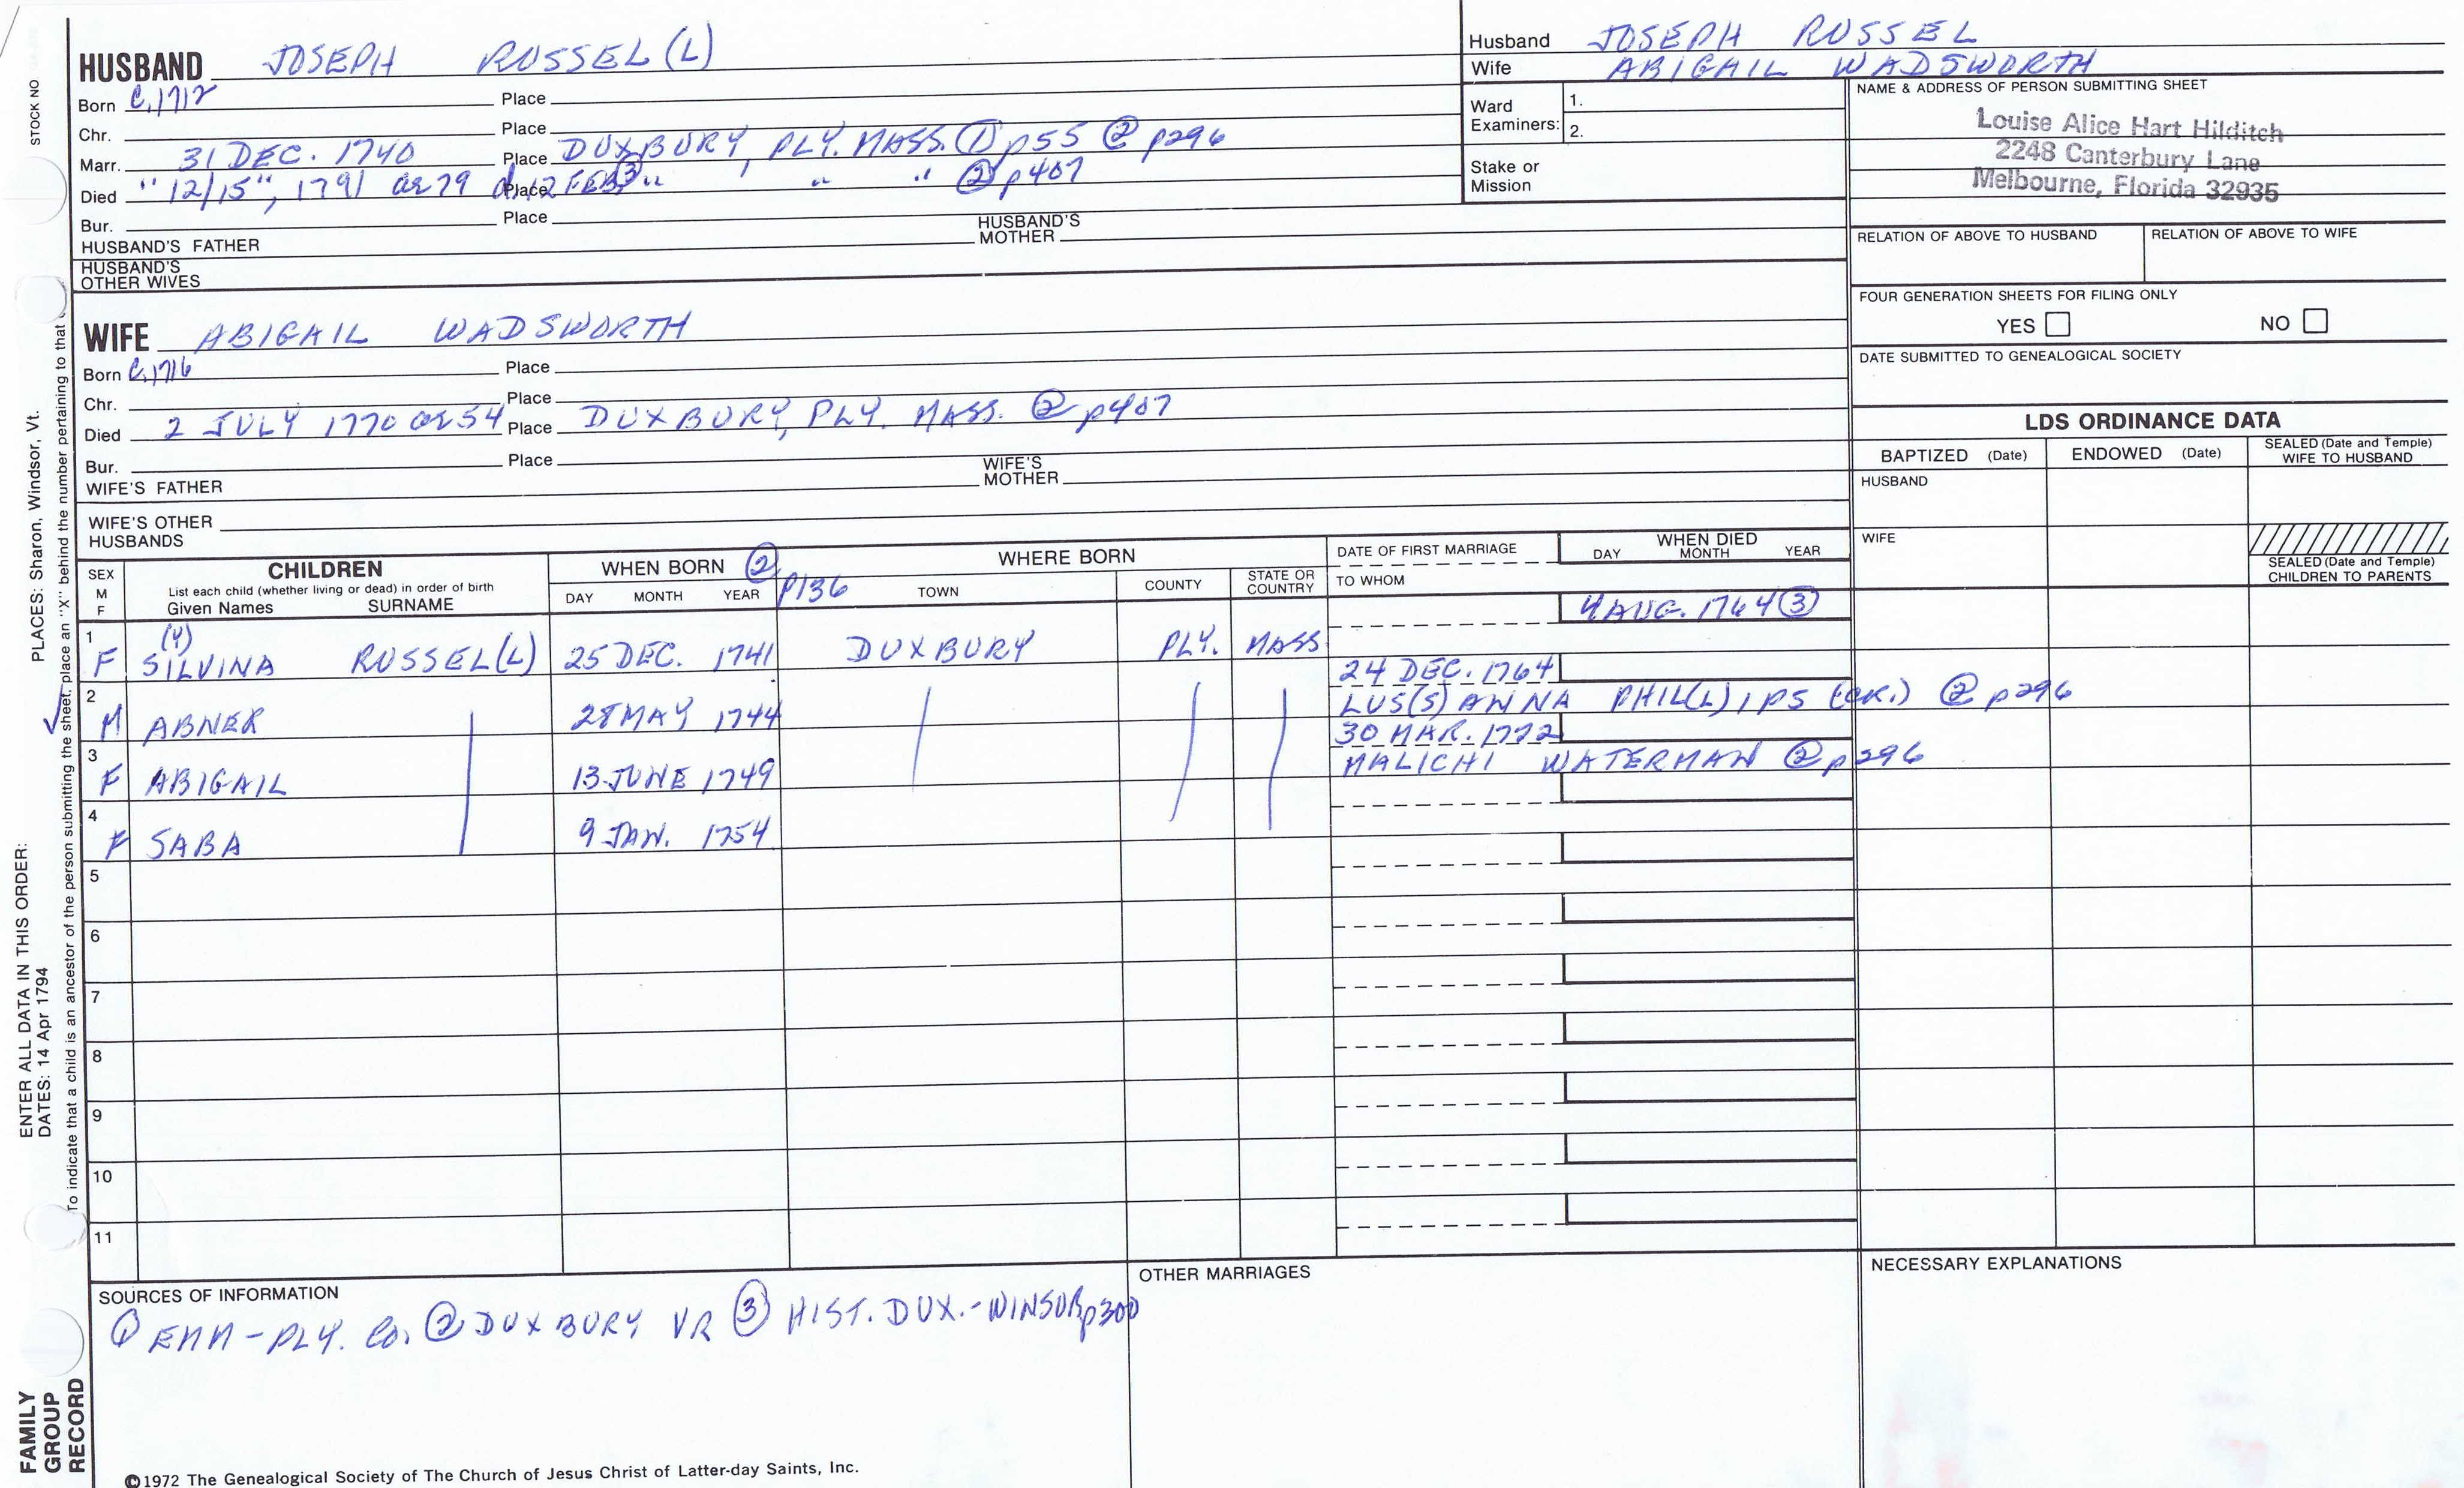 HUSBAND JOSEPH RUSSEL(L)
Born C. 1712 Place
Chr. Place
Marr. 31 DEC. 1740 Place DUXBURY, PLY. MASS. ① p55 ② p296
Died "12/15", 1791 ae 79 d. 12 FEB ③ Place " " " ② p407
Bur. Place
HUSBAND'S FATHER HUSBAND'S MOTHER
HUSBAND'S OTHER WIVES
Husband JOSEPH RUSSEL
Wife ABIGAIL WADSWORTH
Ward Examiners: 1.
2.
Stake or Mission
NAME & ADDRESS OF PERSON SUBMITTING SHEET
Louise Alice Hart Hilditch
2248 Canterbury Lane
Melbourne, Florida 32935
RELATION OF ABOVE TO HUSBAND RELATION OF ABOVE TO WIFE
FOUR GENERATION SHEETS FOR FILING ONLY
YES NO
DATE SUBMITTED TO GENEALOGICAL SOCIETY
WIFE ABIGAIL WADSWORTH
Born C. 1716 Place
Chr. Place
Died 2 JULY 1770 ae 54 Place DUXBURY, PLY. MASS. ② p407
Bur. Place
WIFE'S FATHER WIFE'S MOTHER
WIFE'S OTHER HUSBANDS
LDS ORDINANCE DATA
BAPTIZED (Date) ENDOWED (Date) SEALED (Date and Temple) WIFE TO HUSBAND
HUSBAND
WIFE
SEALED (Date and Temple) CHILDREN TO PARENTS
SEX M F
CHILDREN
List each child (whether living or dead) in order of birth
Given Names SURNAME
WHEN BORN ② p136
DAY MONTH YEAR
WHERE BORN
TOWN COUNTY STATE OR COUNTRY
DATE OF FIRST MARRIAGE
TO WHOM
WHEN DIED
DAY MONTH YEAR
4 AUG. 1764 ③
1 F (Y) SILVINA RUSSEL(L) 25 DEC. 1741 DUXBURY PLY. MASS
24 DEC. 1764
2 M ABNER 28 MAY 1744 LUS(S)ANNA PHIL(L)IPS (CR.) ② p296
30 MAR. 1772
3 F ABIGAIL 13 JUNE 1749 MALICHI WATERMAN ② p296
4 F SABA 9 JAN. 1754
5
6
7
8
9
10
11
SOURCES OF INFORMATION
① EMM - PLY. Co. ② DUXBURY VR ③ HIST. DUX. - WINSOR p300
OTHER MARRIAGES
NECESSARY EXPLANATIONS
©1972 The Genealogical Society of The Church of Jesus Christ of Latter-day Saints, Inc.
STOCK NO
PLACES: Sharon, Windsor, Vt.
ENTER ALL DATA IN THIS ORDER:
DATES: 14 Apr 1794
To indicate that a child is an ancestor of the person submitting the sheet, place an "X" behind the number pertaining to that
FAMILY GROUP RECORD